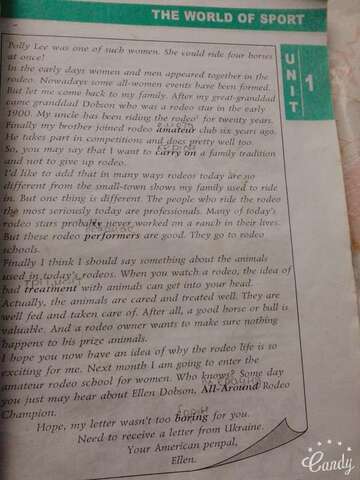 THE WORLD OF SPORT
UNIT 1
Polly Lee was one of such women. She could ride four horses
at once!
In the early days women and men appeared together in the
rodeo. Nowadays some all-women events have been formed.
But let me come back to my family. After my great-granddad
came granddad Dobson who was a rodeo star in the early
1900. My uncle has been riding the rodeo' for twenty years.
Finally my brother joined rodeo amateur club six years ago.
He takes part in competitions and does pretty well too.
So, you may say that I want to carry on a family tradition
and not to give up rodeo.
I'd like to add that in many ways rodeos today are no
different from the small-town shows my family used to ride
in. But one thing is different. The people who ride the rodeo
the most seriously today are professionals. Many of today's
rodeo stars probably never worked on a ranch in their lives.
But these rodeo performers are good. They go to rodeo
schools.
Finally I think I should say something about the animals
used in today's rodeos. When you watch a rodeo, the idea of
bad treatment with animals can get into your head.
Actually, the animals are cared and treated well. They are
well fed and taken care of. After all, a good horse or bull is
valuable. And a rodeo owner wants to make sure nothing
happens to his prize animals.
I hope you now have an idea of why the rodeo life is so
exciting for me. Next month I am going to enter the
amateur rodeo school for women. Who knows? Some day
you just may hear about Ellen Dobson, All-Around Rodeo
Champion.
Hope, my letter wasn't too boring for you.
Need to receive a letter from Ukraine.
Your American penpal,
Ellen.
Candy